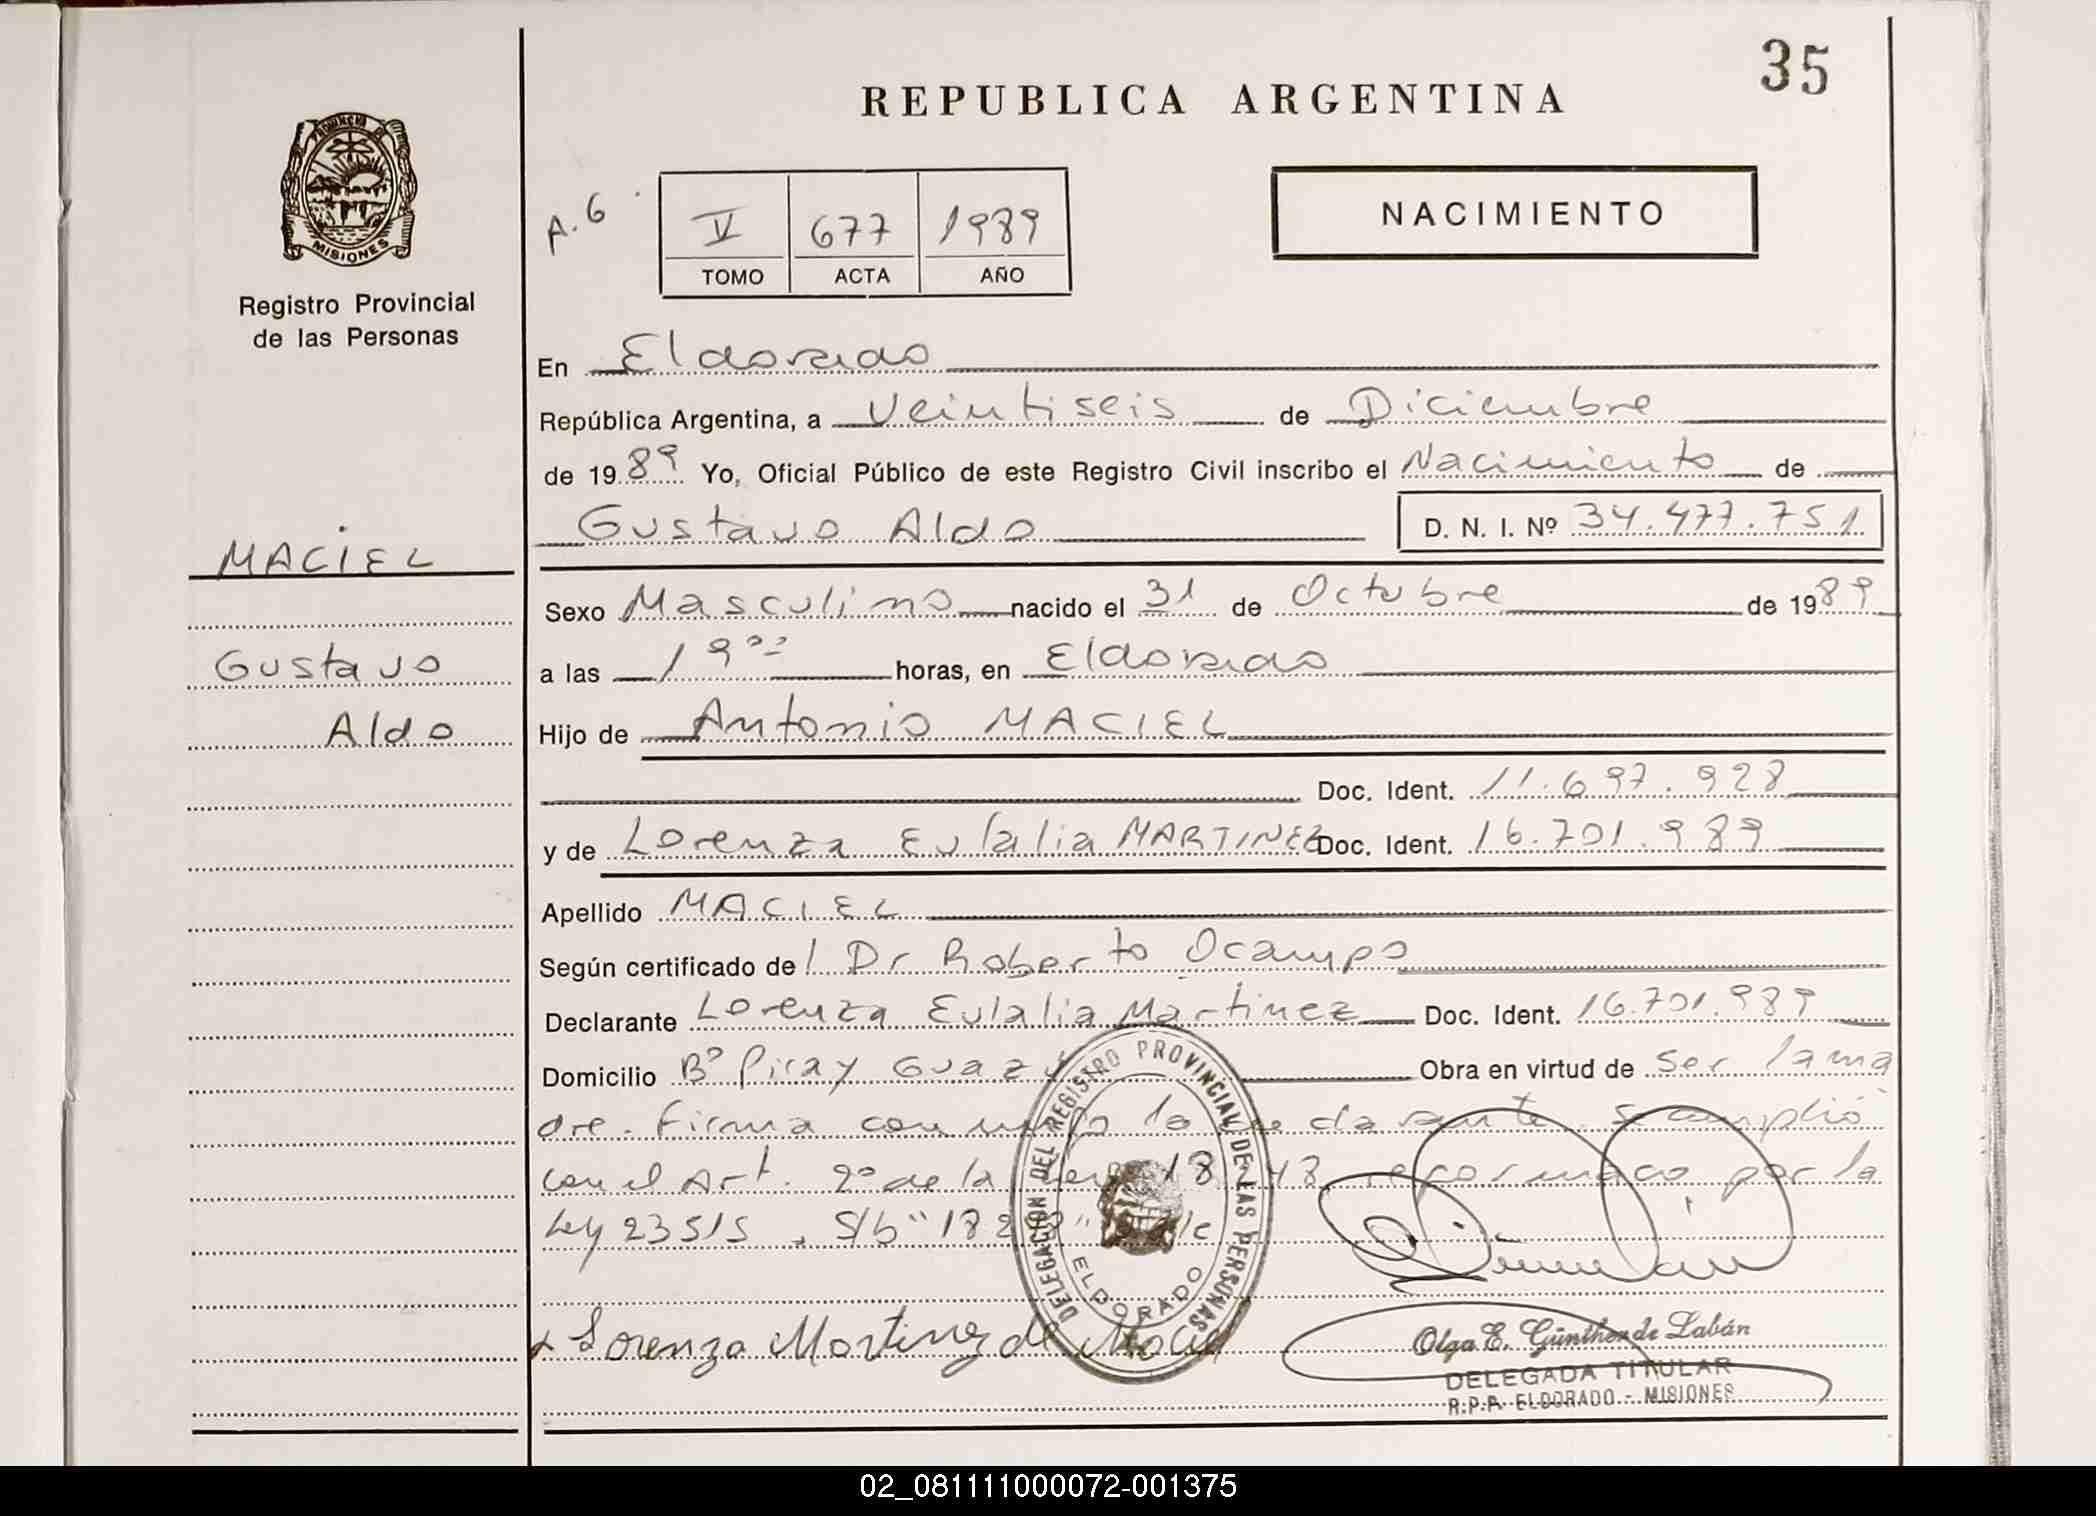 35
REPUBLICA ARGENTINA
PROVINCIA DE
MISIONES
Registro Provincial
de las Personas
A. 6
V 677 1989
TOMO ACTA AÑO
NACIMIENTO
En Eldorado
República Argentina, a Veintiseis de Diciembre
de 1989 Yo, Oficial Público de este Registro Civil inscribo el Nacimiento de
Gustavo Aldo D. N. I. Nº 34.477.751
MACIEL
Sexo Masculino nacido el 31 de Octubre de 1989
Gustavo
a las 19ºº horas, en Eldorado
Aldo
Hijo de Antonio MACIEL
Doc. Ident. 11.697.928
y de Lorenza Eulalia MARTINEZ Doc. Ident. 16.701.989
Apellido MACIEL
Según certificado de Dr Roberto Ocampo
Declarante Lorenza Eulalia Martinez Doc. Ident. 16.701.989
Domicilio Bº Piray Guazú Obra en virtud de ser la ma
dre. Firma conmigo la declarante. Se cumplió
con el Art. 2º de la Ley 18248 reformado por la
Ley 23515, S/b "18248"
DELEGACION DEL REGISTRO PROVINCIAL DE LAS PERSONAS
ELDORADO
x Lorenza Martinez de Maciel
Olga E. Günther de Labán
DELEGADA TITULAR
R.P.P. ELDORADO - MISIONES
02_081111000072-001375